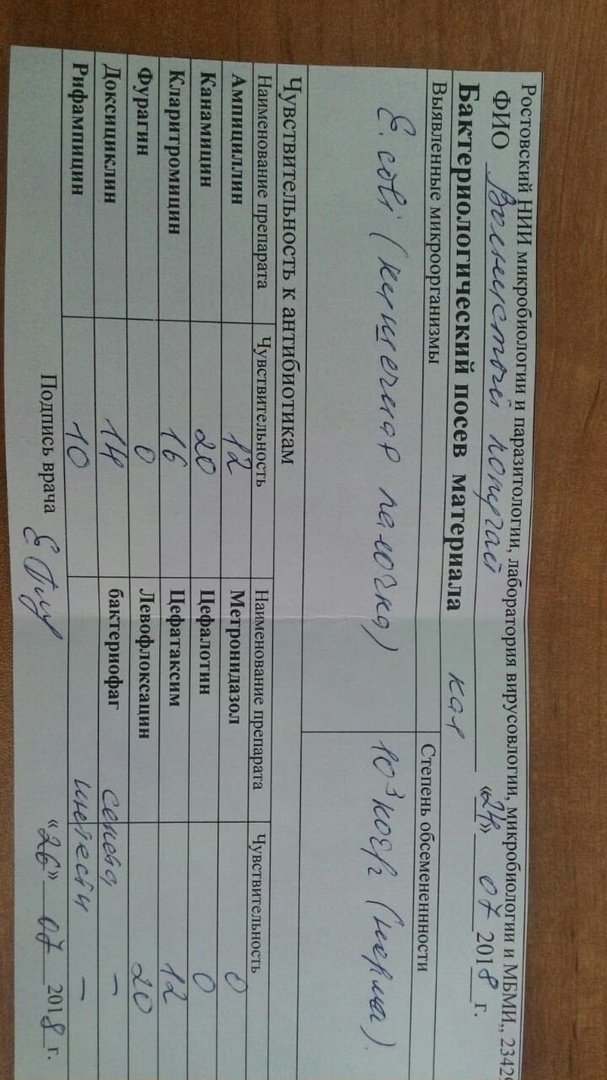 Ростовский НИИ микробиологии и паразитологии, лаборатория вирусовлогии, микробиологии и МБМИ,, 2342
ФИО Волнистый попугай «24» 07 2018 г.
Бактериологический посев материала кал
Выявленные микроорганизмы Степень обсемененнности
E. coli (кишечная палочка) 10³ КОЕ (норма).
Чувствительность к антибиотикам
Наименование препарата Чувствительность Наименование препарата Чувствительность
Ампициллин 12 Метронидазол 0
Канамицин 20 Цефалотин 0
Кларитромицин 16 Цефатаксим 12
Фурагин 0 Левофлоксацин 20
Доксициклин 14 бактериофаг –
Рифампицин 10 интести –
Подпись врача «26» 07 2018 г.